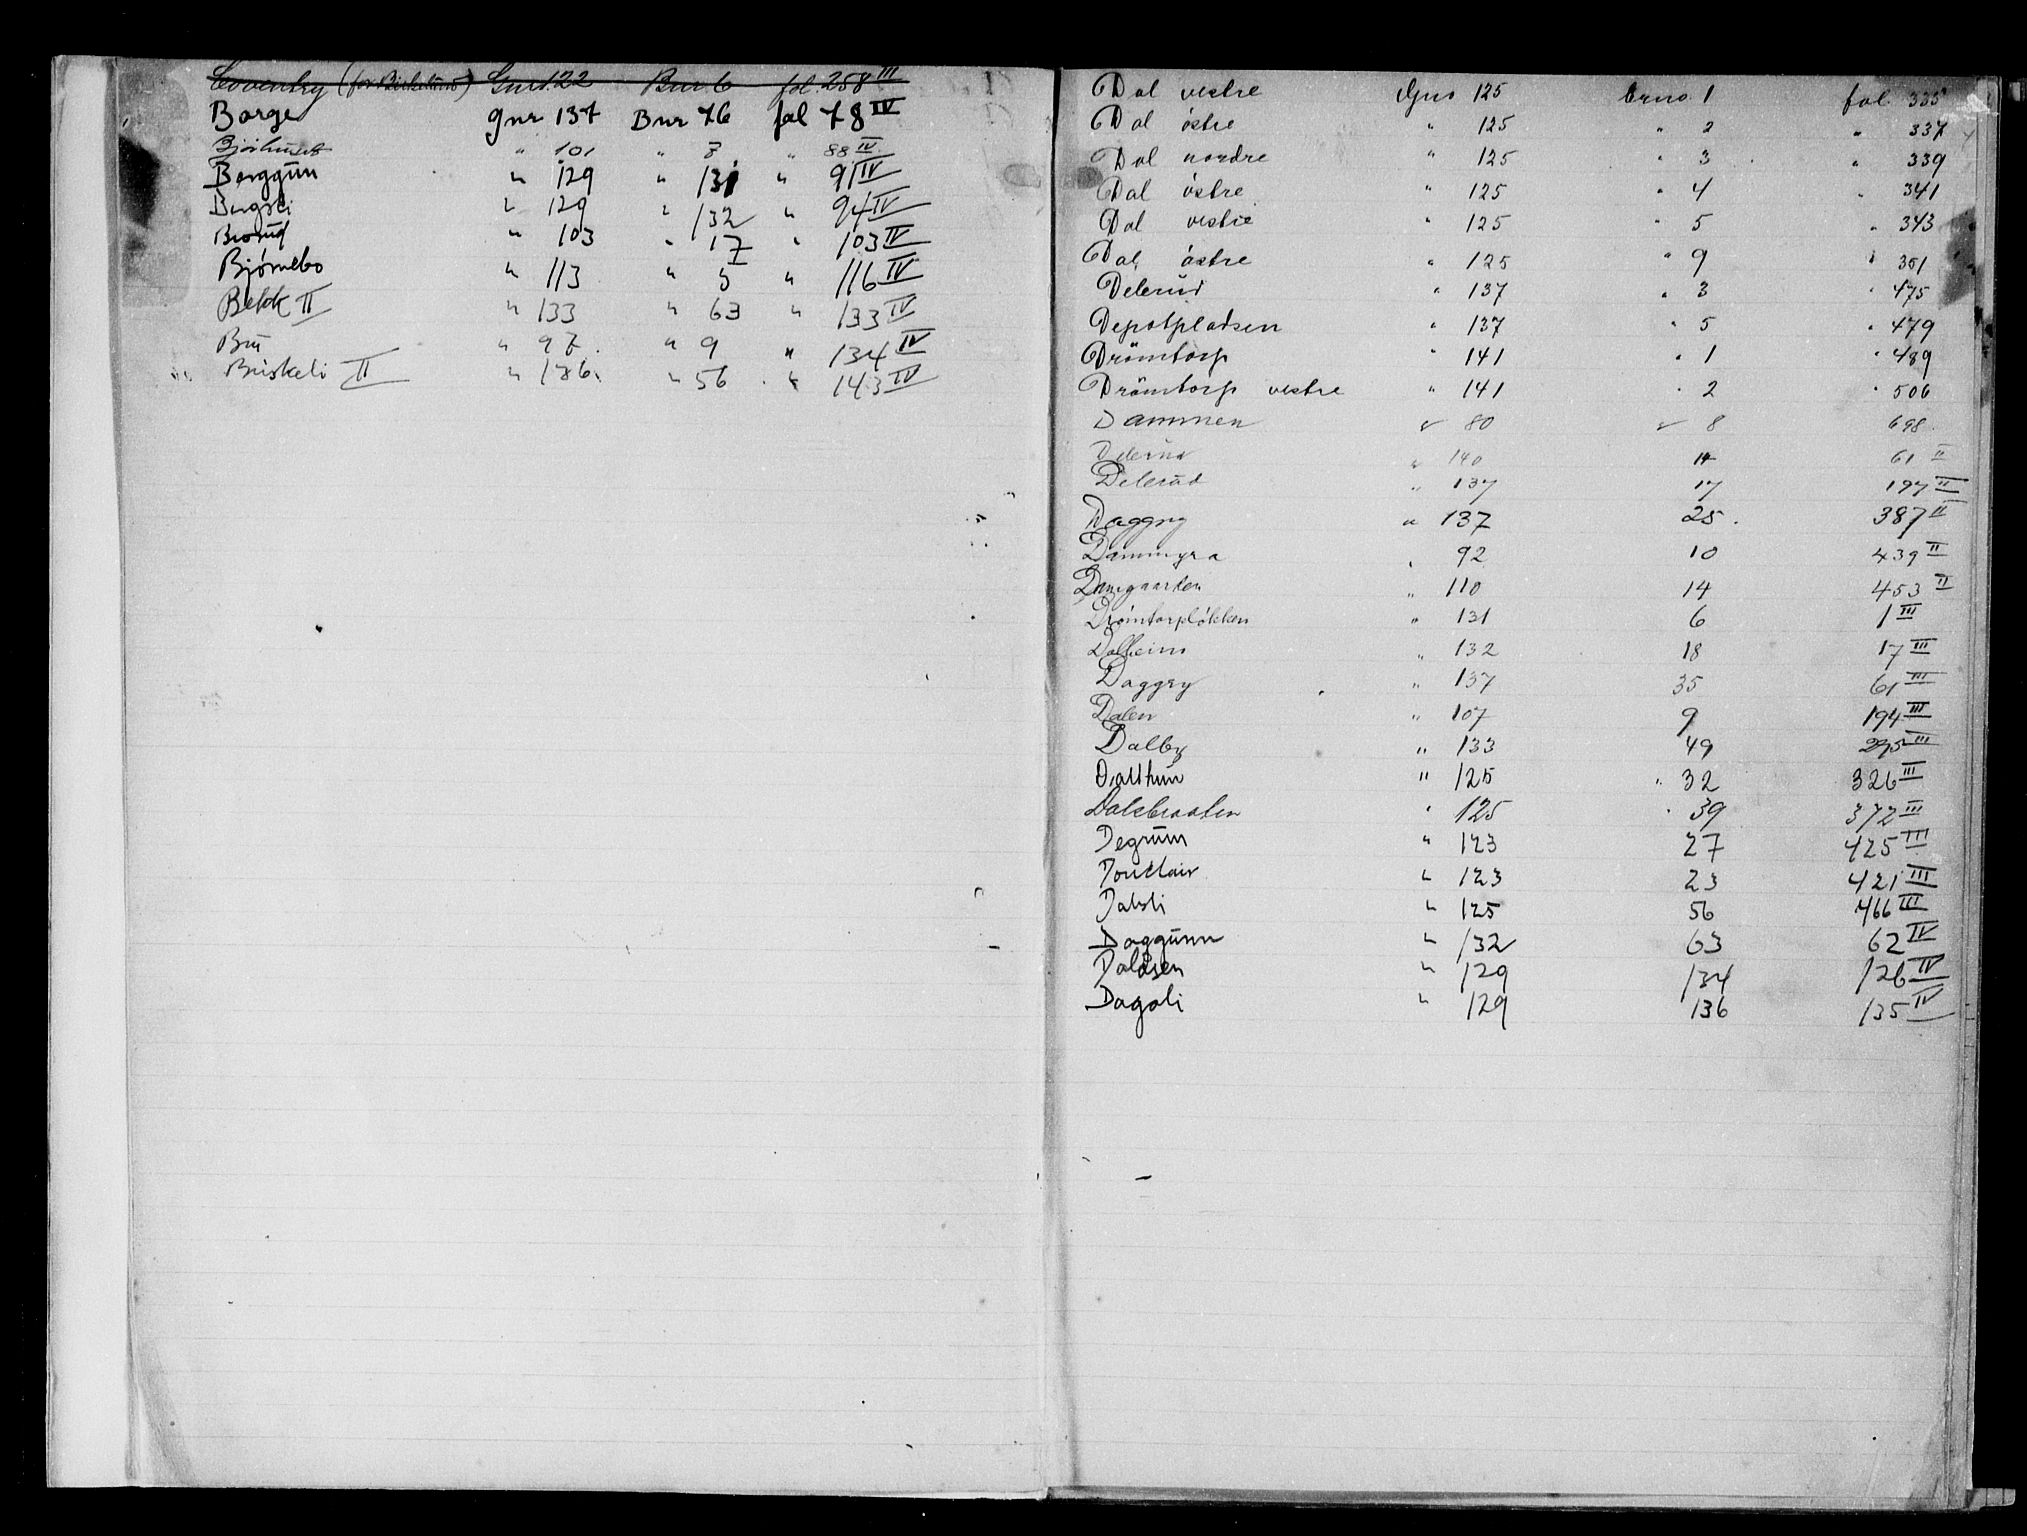 Coventry (for Birkelund) Gnr. 122 Bnr. 6 fol. 258 III
Borge gnr 137 Bnr 76 fol 78 IV
Bjørhuset " 101 " 8 " 88 IV
Berggun " 129 " 131 " 91 IV
" 129 " 132 " 94 IV
Brorud " 103 " 17 " 103 IV
Bjørnebo " 113 " 5 " 116 IV
Bekk II " 133 " 63 " 133 IV
Bru " 97. " 9 " 134 IV
Buskeli II " 136. " 56 " 143 IV
Dal vestre Gno 125 Brno. 1 fol. 335
Dal östre " 125 " 2 " 337
Dal nordre " 125 " 3 " 339
Dal östre " 125 " 4 " 341
Dal vestre 125 " 5 " 343
Dal östre " 125 " 9 " 351
Delerud " 137 " 3 " 475
Depotpladsen " 137 " 5 " 479
Drömtorp " 141 " 1 " 489
Drömtorp vestre " 141 " 2 " 506
Dammen " 80 " 8 698
Delerud " 140 14 61 II
Delerud " 137 17 197 II
Daggry " 137 25. 387 II
Dammyra " 92 10 439 II
Damgaarden " 110 14 453 II
Drömtorpløkken " 131 6 1 III
Dalheim " 132 18 17 III
Daggry " 137 35 61 III
Dalen " 107 9 194 III
Dalby " 133 49 295 III
Dalthun " 125 " 32 326 III
Dalsbraaten " 125 " 39 372 III
Degrum " 123 27 425 III
" 123 23 421 III
Dalsli " 125 56 466 III
Daggunn " 132 63 62 IV
Dalåsen " 129 134 126 IV
Dagali " 129 136 135 IV